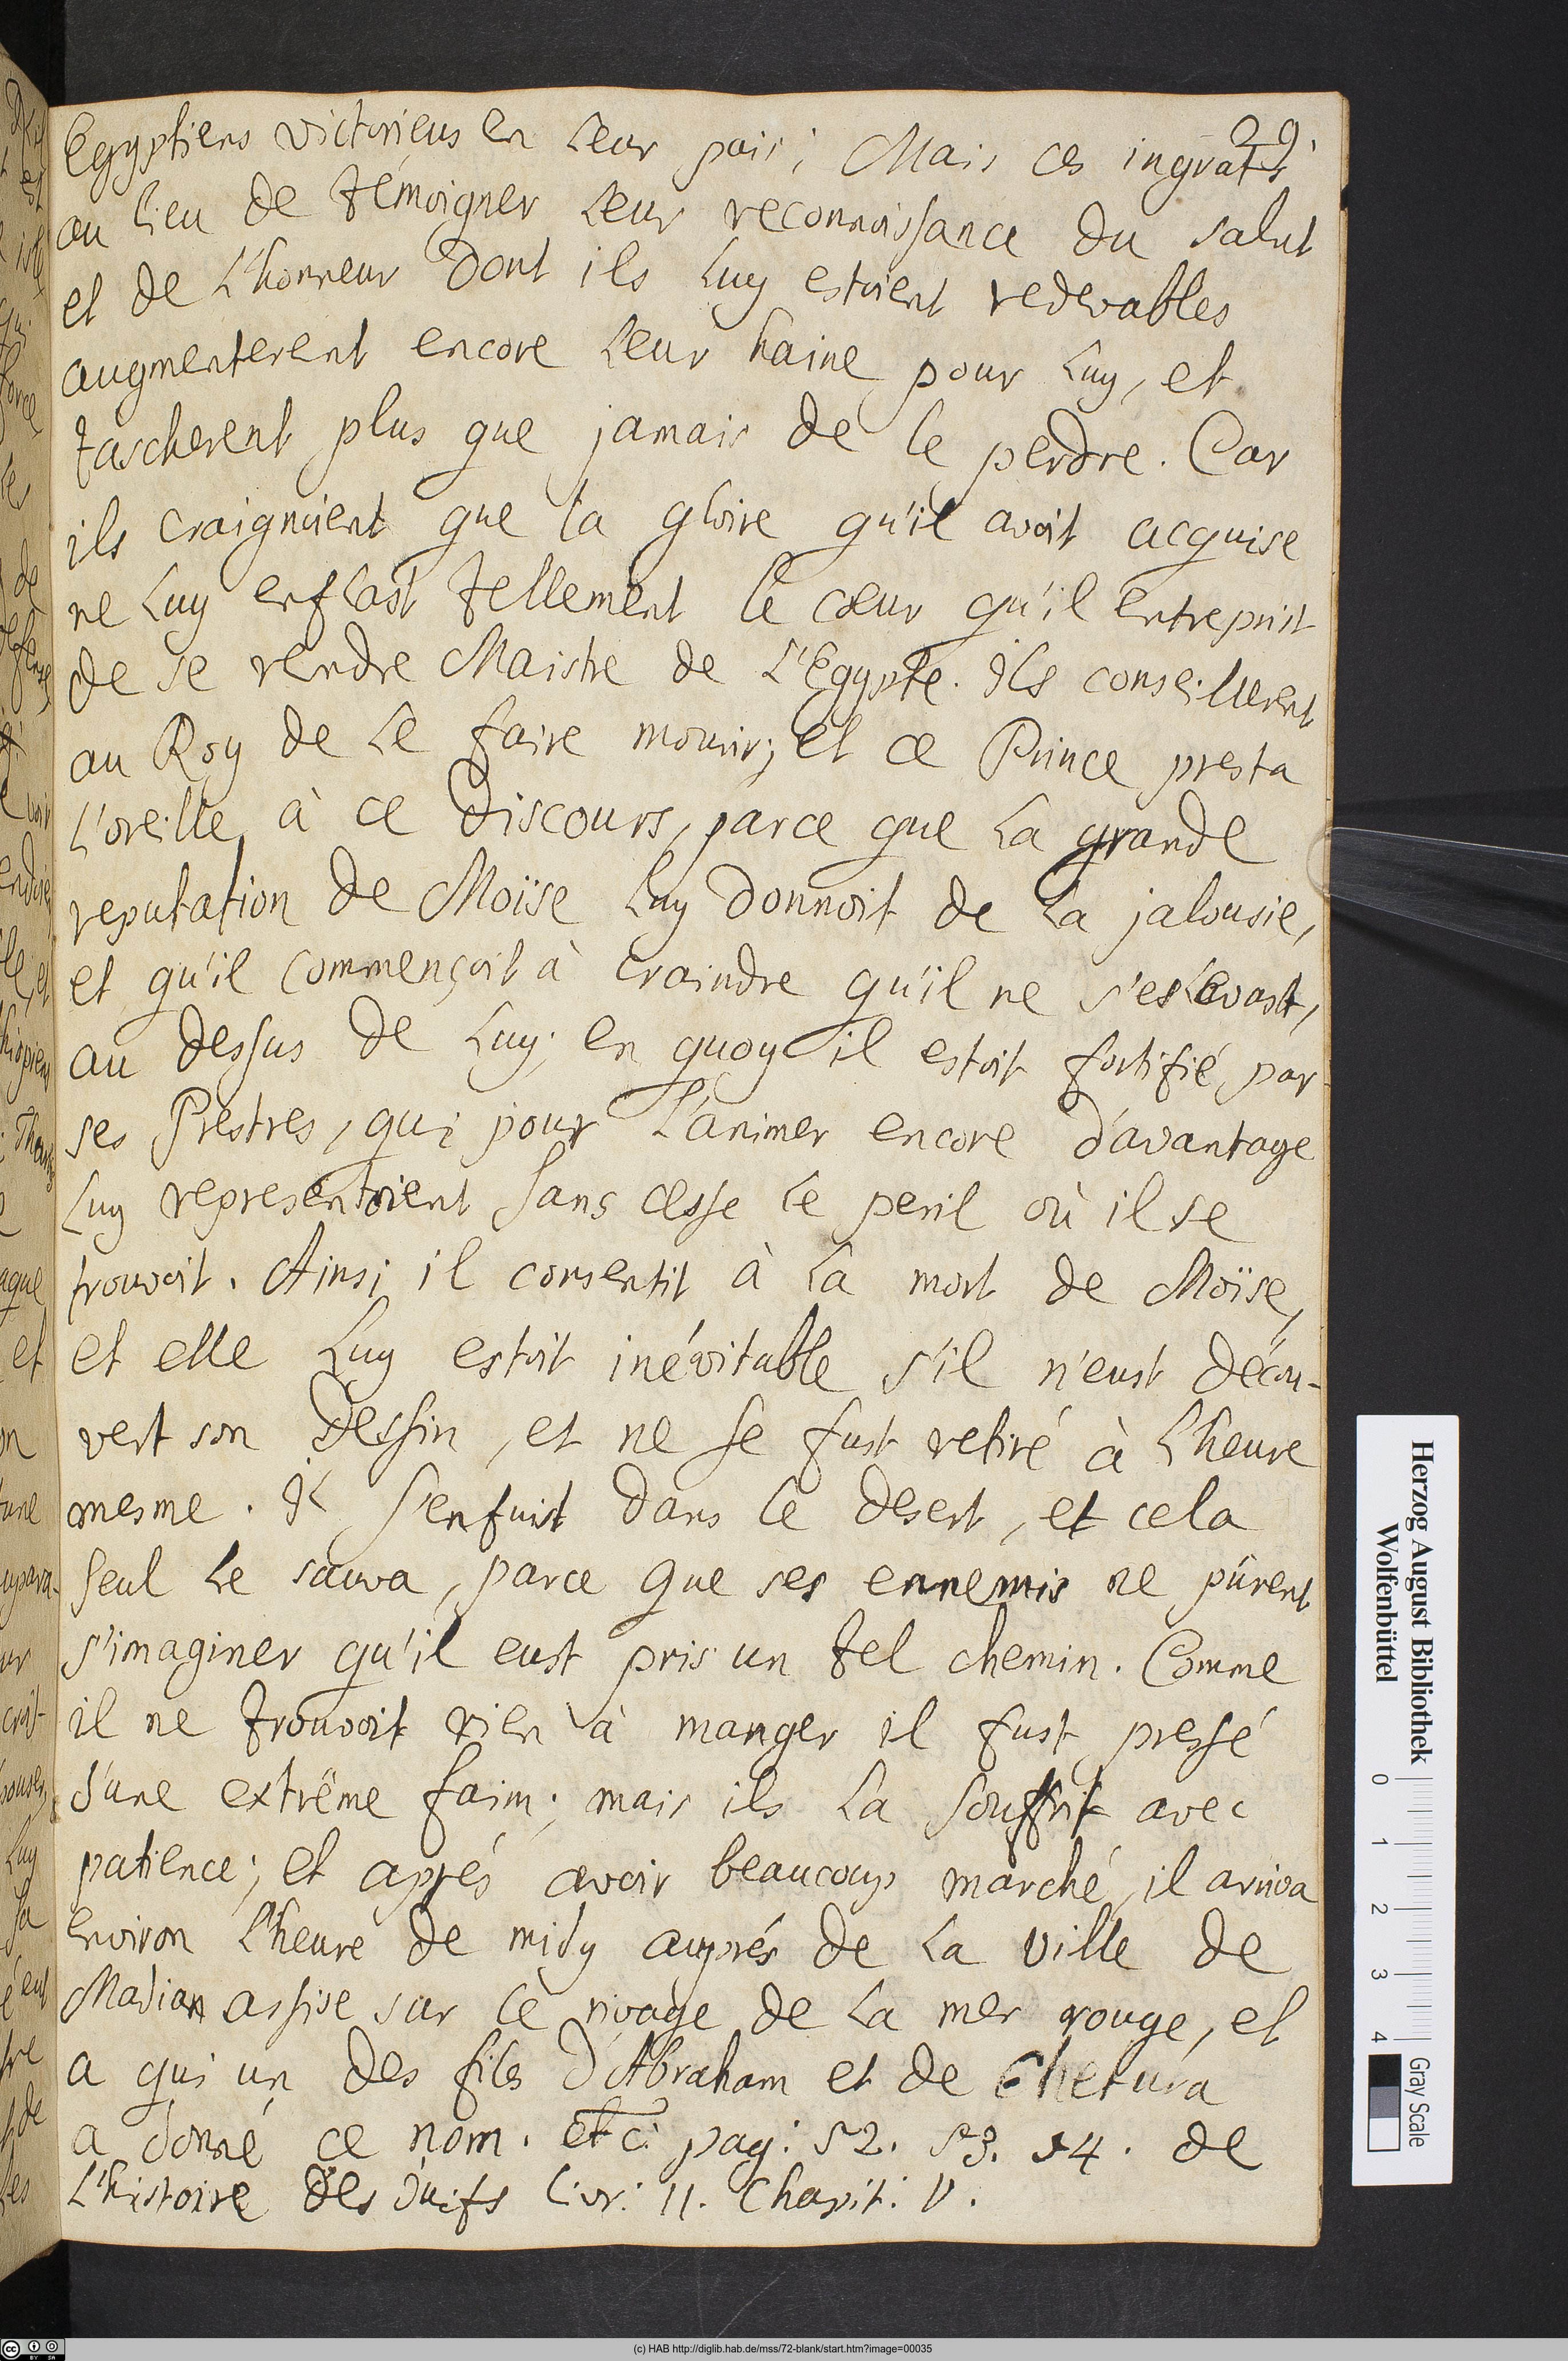 29.
Egyptiens victorieus en leur pais; Mais ces ingrats
au lieu de témoigner leur reconnoissance du salut
et de L'honneur dont ils Luy estoient redevables
augmenterent encore leur haine pour Luy, et
tascherent plus que jamais de le perdre. Car
ils craignoient que la gloire qu'il avoit acquise
ne Luy enflast tellement le cœur qu'il entreprist
de se rendre Maistre de L'Egypte. Ils conseillerent
au Roy de Le faire mourir; et ce Prince presta
L'oreille à ce discours, parce que La grande
reputation de Moïse Luy donnoit de La jalousie,
et qu'il commençoit à craindre qu'il ne s'eslevast,
au dessus de Luy; en quoy il estoit fortifié par
ses Prestres, qui pour L'animer encore d'avantage
Luy representoient sans cesse le peril où il se
trouvoit. Ainsi il consentit à La mort de Moïse,
et elle Luy estoit inévitable s'il n'eust décou-
vert son dessin, et ne se fust retiré à L'heure
mesme. Il s'enfuit dans le desert, et cela
seul Le sauva, parce que ses ennemis ne pûrent
s'imaginer qu'il eust pris un tel chemin. Comme
il ne trouvoit rien à manger il fust pressé
d'une extrême faim; mais ils La souffrit avec
patience; et aprés avoir beaucoup marché, il arriva
environ L'heure de midy auprés de La ville de
Madian assise sur le rivage de La mer rouge, et
a qui un des fils d'Abraham et de Chetura
a donné ce nom. etc: pag: 52. 53. 54. de
L'histoire des Juifs livr: II. Chapit: V.
Herzog August Bibliothek
Wolfenbüttel
0 1 2 3 4
Gray Scale
(c) HAB http://diglib.hab.de/mss/72-blank/start.htm?image=00035